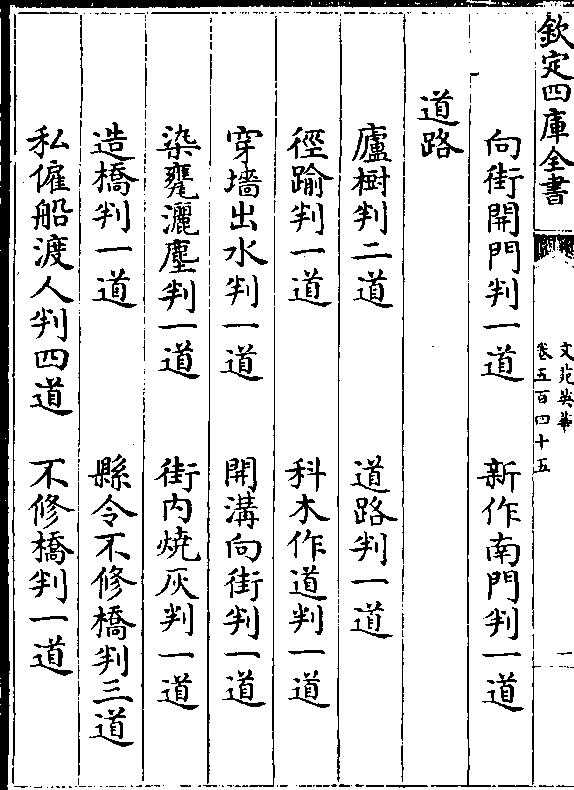 欽定四庫全書
文苑英華
卷五百四十五
一
向街開門判一道　新作南門判一道
道路
廬樹判二道　道路判一道
徑踰判一道　科木作道判一道
穿墻出水判一道　開溝向街判一道
染甕灑塵判一道　街内燒灰判一道
造橋判一道　縣令不修橋判三道
私僱船渡人判四道　不修橋判一道